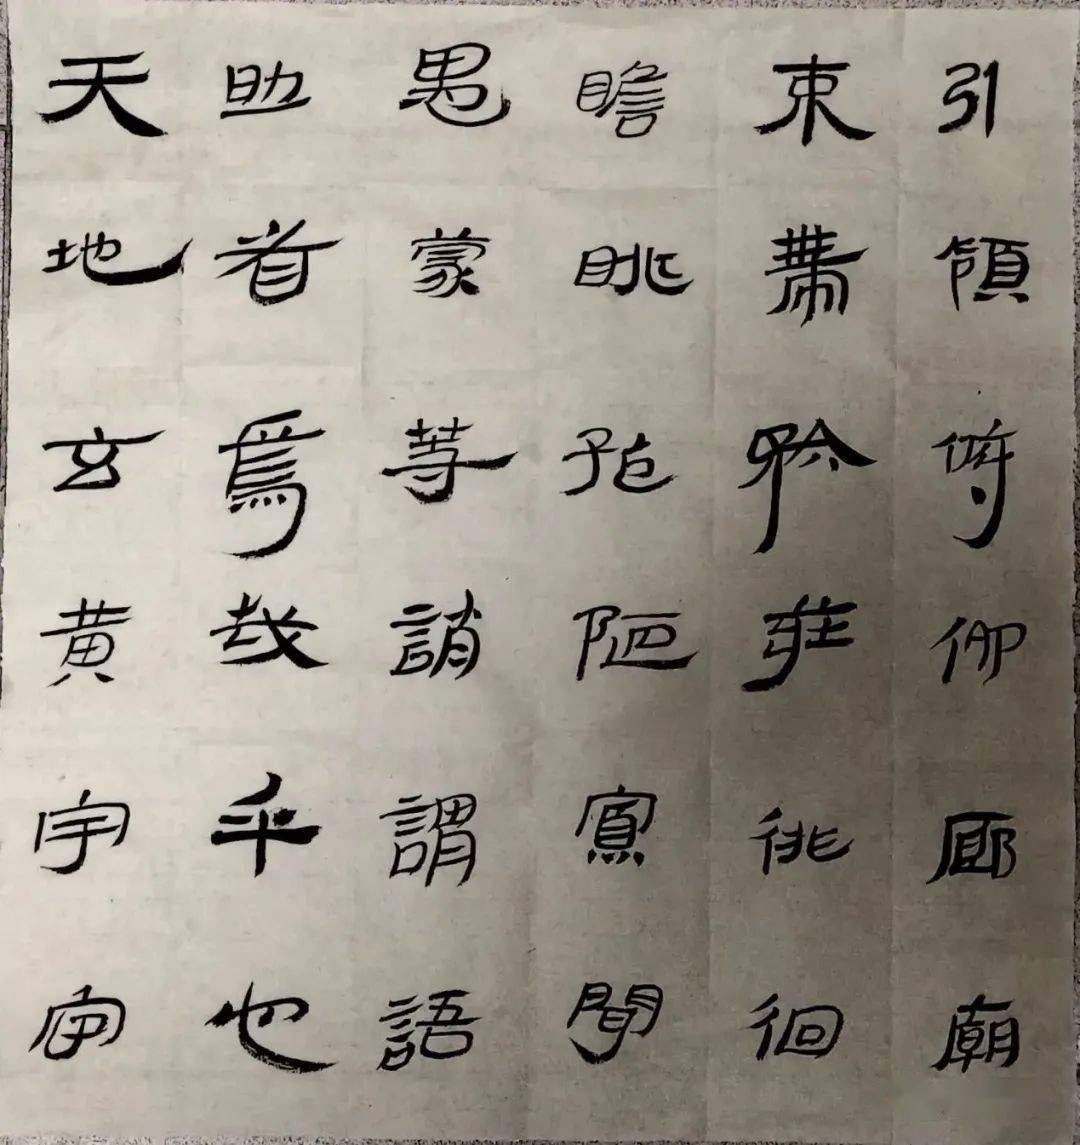 引領俯仰廊廟
束帶矜莊徘徊
瞻眺孤陋寡聞
愚蒙等誚謂語
助者焉哉乎也
天地玄黄宇宙